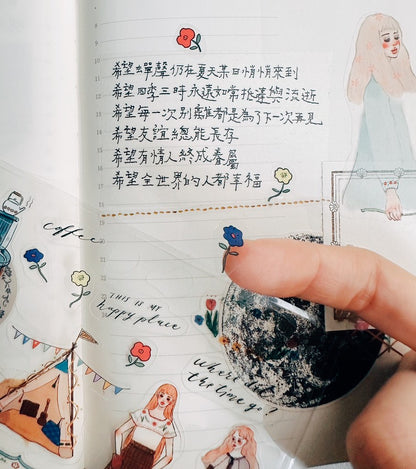 希望蟬聲仍在夏天某日悄悄來到
希望四季三時永遠如常抵達與流逝
希望每一次別離都是為了下一次再見
希望友誼總能長存
希望有情人終成眷屬
希望全世界的人都幸福
coffee
THIS IS MY
happy place
where did
the time go?
9
10
11
12
13
14
15
16
17
18
19
20
21
22